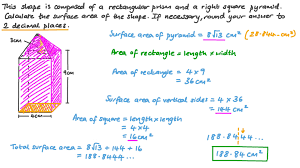 This shape is composed of a rectangular prism and a right square pyramid.
Calculate the surface area of the shape. If necessary, round your answer to
2 decimal places.
Surface area of pyramid = 8√13 cm² (28.844... cm²)
3cm
Area of rectangle = length × width
Area of rectangle = 4 × 9
= 36cm²
9cm
Surface area of vertical sides = 4 × 36
= 144 cm²
Area of square = length × length
= 4×4
= 16cm²
4cm
Total surface area = 8√13 + 144 + 16
= 188.8444...
188.8444...
188.84 cm²